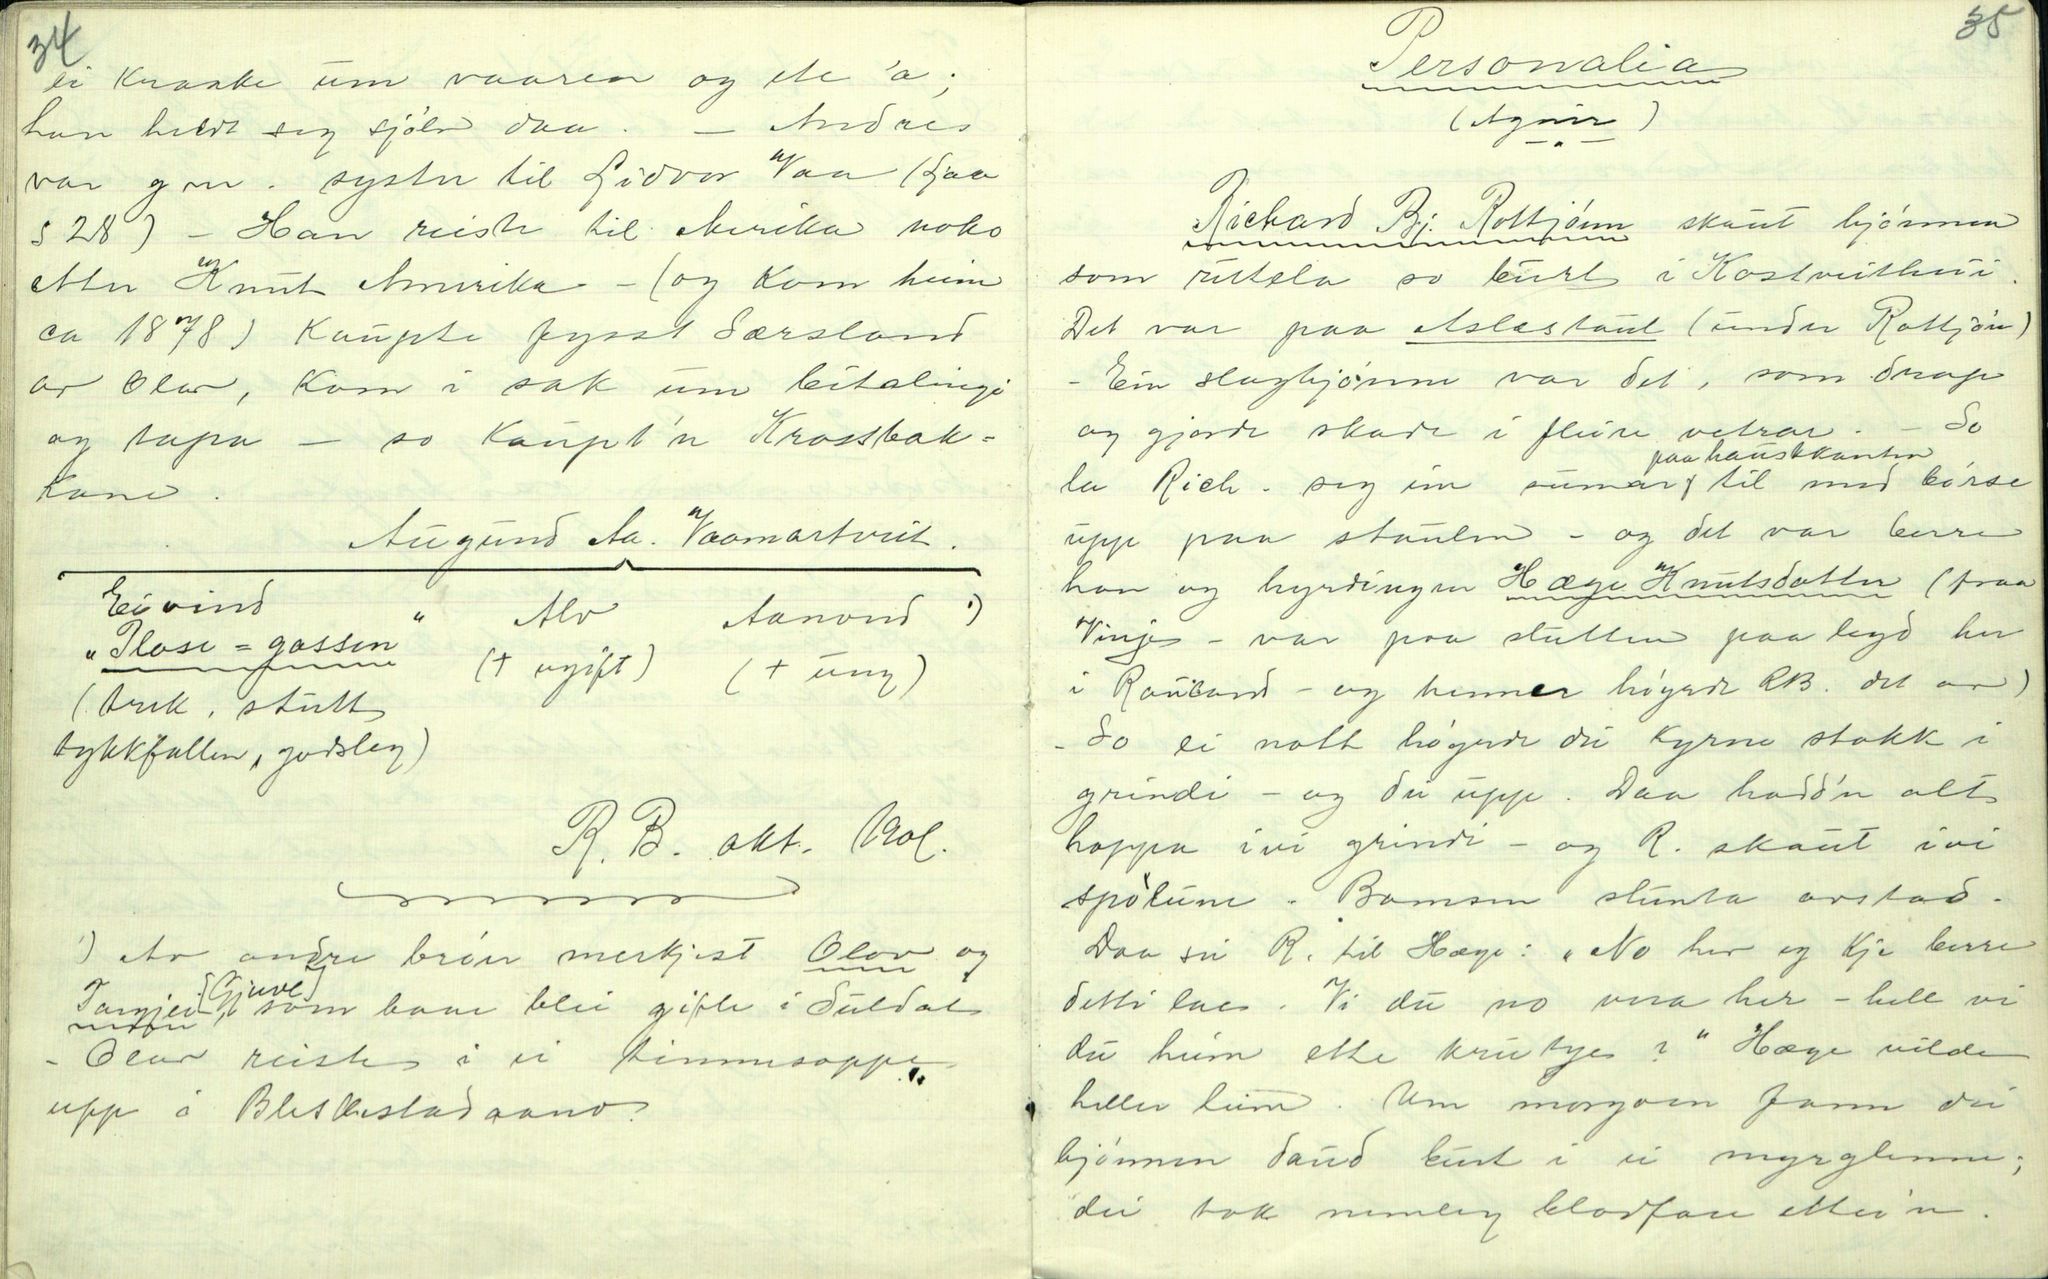 34
ei kraake um vaaren og ete 'a;
han heldt seg sjölv daa. — Andres
var gm. syster til Gidvor Vaa (fraa
s 28) – Han reiste til Amerika noko
etter Knut Amerika – (og kom heim
ca 1878) Kaupte fysst Særsland
av Olav, kom i sak um beitalingi
og tapa — so kaupt'n Krossbak-
kane.
Augund Aa. Vaamartveit.
Eivind
"Plass=gassen"
(trek, stutt
tykkfallen, godsleg)
Alv
(† ugift)
Aanond ¹)
(† ung)
R. B. okt.
¹) Av andre brör merkjest Olov og
Targjei (Gjuve), som baae blei gifte i Suldal
- Olav reiste i ei timmesoppe
upp i Bleskestadaano.
35
Personalia
(Agnir)
Richard Bj. Rottjónn skaut bjónnen
som rutela so burt i Kostveithei.
Det var paa Aslestaul (under Rottjón)
- Ein slagbjónne var det, som drap
og gjorde skade i fleire vetrar. – So
la Rich. seg ein sumar paa haustkanten til med börse
upp paa staulen – og det var berre
han og hyrdingen Hæge Knutsdotter (fraa
Vinje – var paa stutten paa legd her
i Rauland – og henner höyrde RB. det av)
- So ei nott höyrde dei kyrne stokk i
grindi – og dei upp. Daa hadd'n alt
hoppa ivi grindi – og R. skaut ivi
spölune. Bamsen stunta avstad.
Daa sei R. til Hæge: "No hev eg kje berre
detti lae. Vi du no vera her – hell vi
du heim ette krutye?" Hæge vilde
heller heim. Um morgoen fann dei
bjónnen daud burt i ei myrglenne;
dei tok nemleg blodfare etter'n.